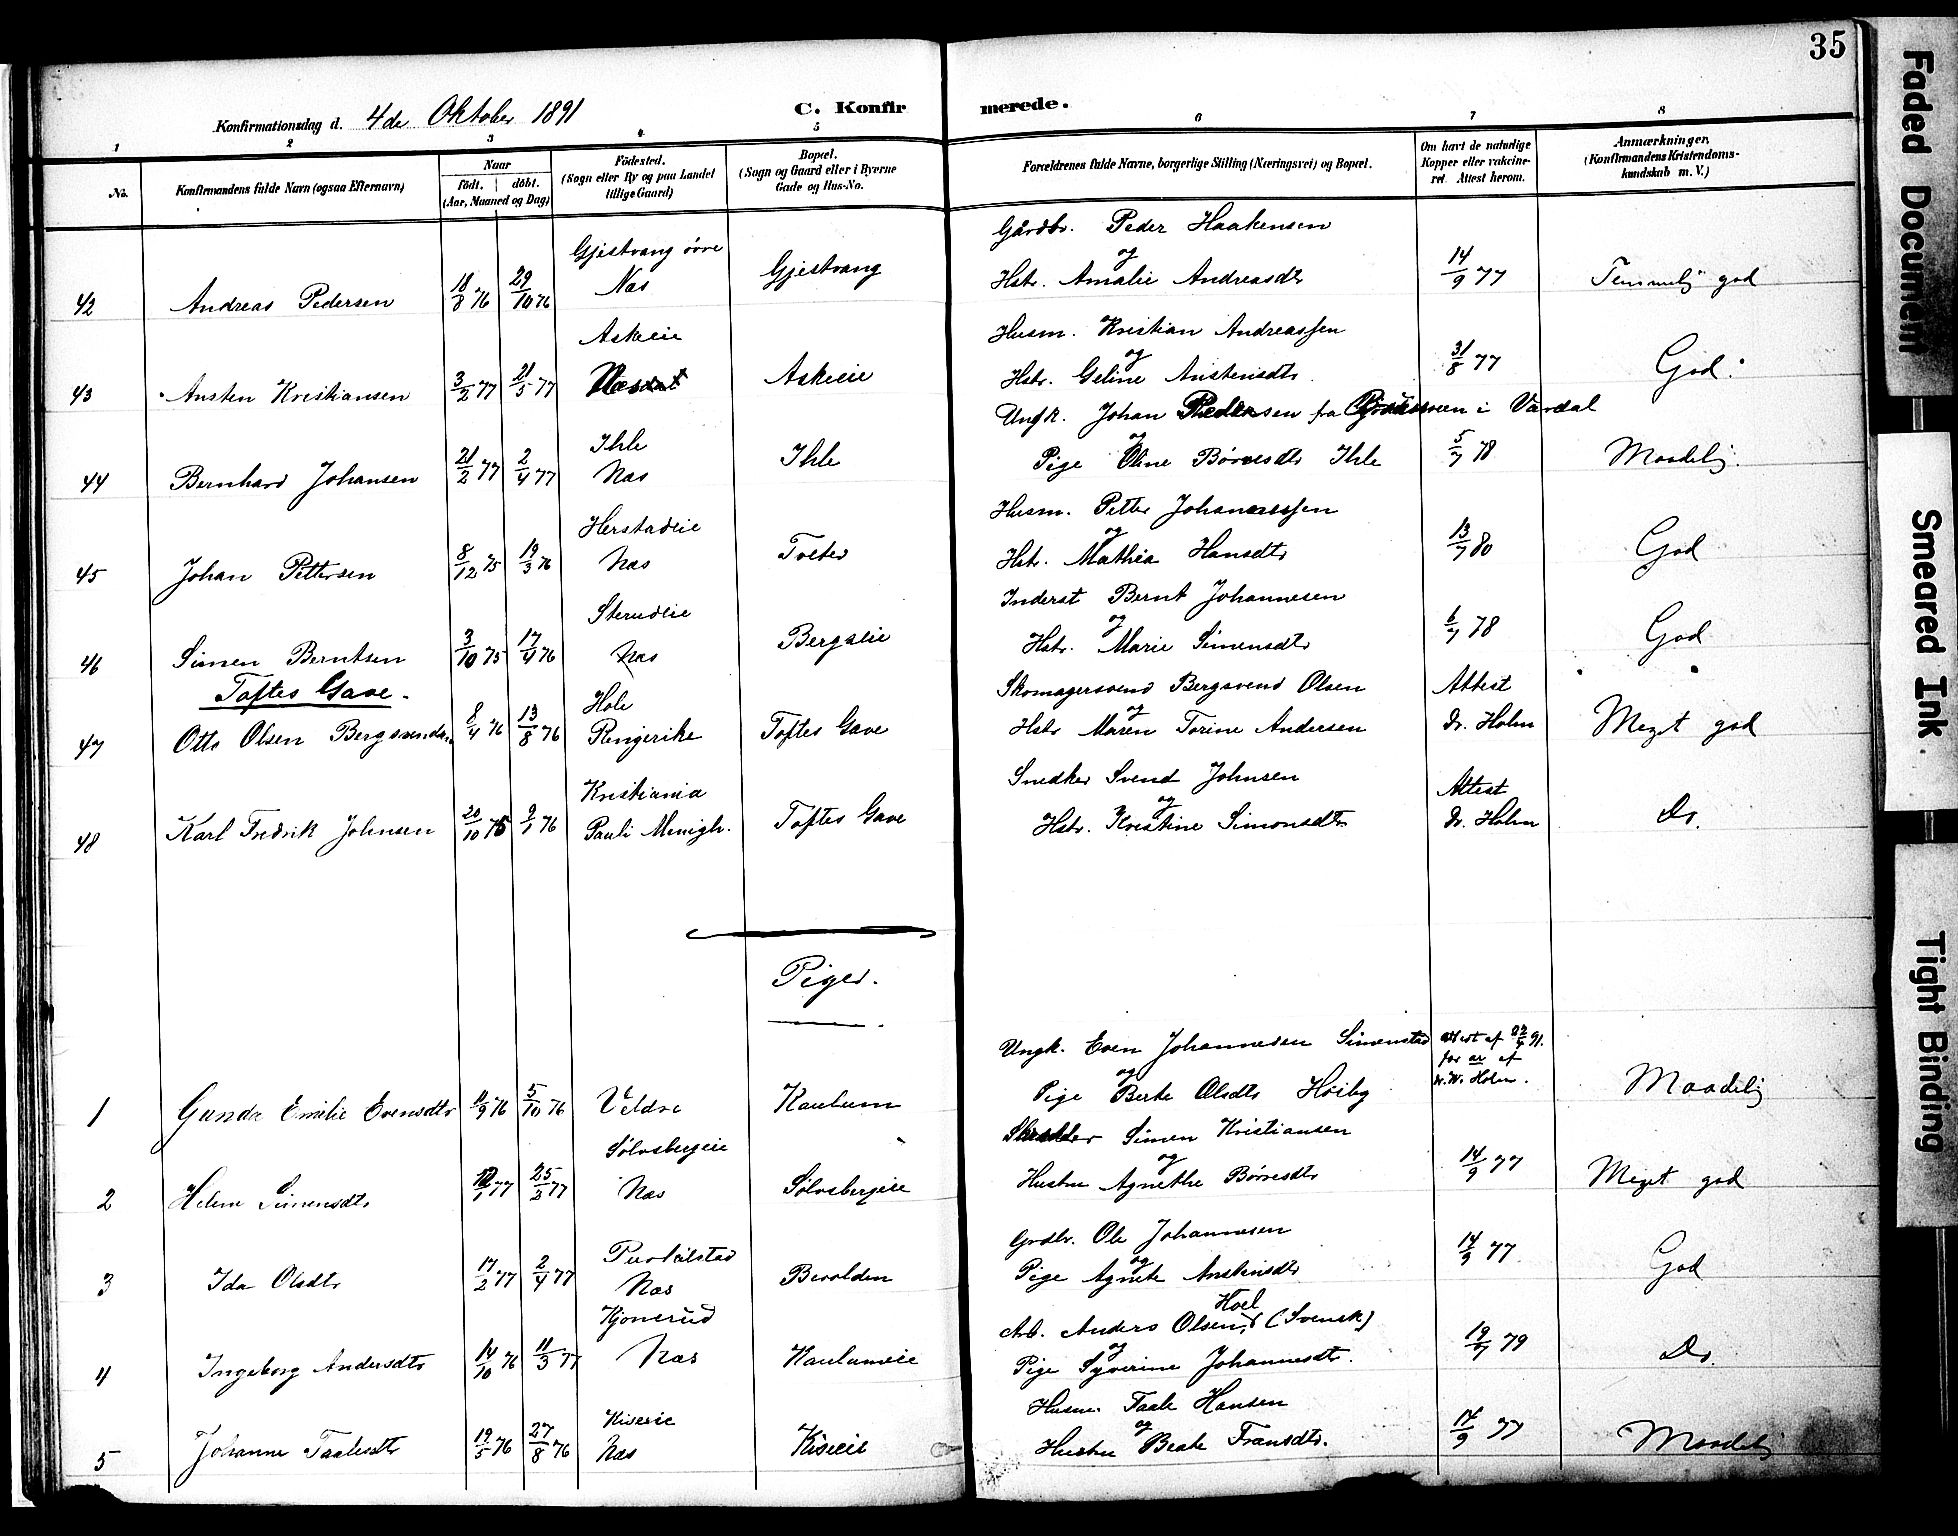 35
Konfirmationsdag d. 4de Oktober 1891
C. Konfirmerede.
1 2 3 4 5 6 7 8
No.
Konfirmandens fulde Navn (ogsaa Efternavn)
Naar
født. døbt.
(Aar, Maaned og Dag)
Fødested.
(Sogn eller By og paa Landet
tillige Gaard)
Bopæl.
(Sogn og Gaard eller i Byerne
Gade og Hus-No.
Forældrenes fulde Navne, borgerlige Stilling (Næringsvei) og Bopæl.
Om havt de naturlige
Kopper eller vakcine-
ret Attest herom.
Anmærkninger.
(Konfirmandens Kristendoms-
kundskab m. V.)
Gjestvang övre
Gårdbr. Peder Haakensen
og
42 Andreas Pedersen 18/8 76 29/10 76 Nes Gjestvang Hstr. Amalie Andreasdtr 14/9 77 Temmelig god
Askeie
Husm. Kristian Andreassen
og
43 Austen Kristiansen 3/2 77 21/5 77 Askeie Hstr. Geline Austensdtr. 31/8 77 God.
Ihle
Ungk. Johan Pedersen fra i Vardal
og
44 Bernhard Johansen 21/2 77 2/4 77 Næs Ihle Pige Oline Børresdtr Ihle 5/7 78 Maadelig.
Herstadeie
Husm. Petter Johannessen
og
45 Johan Pettersen 8/12 75 19/3 76 Næs Tveter Hstr. Mathea Hansdtr 13/7 80 God
Skrudeie
Inderst Bernt Johannesen
og
46 Simen Berntsen 3/10 75 17/4 76 Næs Bergseie Hstr. Marie Simensdtr 6/7 78 God
Toftes Gave.
Hole
Skomagersvend Bergsvend Olsen
og
Attest
47 Otto Olsen Bergsvendsen 8/4 76 13/8 76 Ringerike Toftes Gave Hstr Maren Torine Andersen Dr. Holm Meget god
Kristiania
Snedker Svend Johnsen
og
Attest
48 Karl Fredrik Johnsen 20/10 75 9/1 76 Pauli Menigh. Toftes Gave Hstr. Kristine Simonsdtr Dr. Holm Do.
Piger.
Ungk. Even Johannesen Simenstad
og
Attest af 22/9 91.
for ar af
Dr. W. Holm.
1 Gunda Emilie Evensdtr 11/9 76 5/10 76 Veldre Kaulum Pige Berte Olsdtr Höiby Maadelig
Sølvsbergeie
Skrædder Simen Kristiansen
og
2 Helene Simensdtr 77 25/2 77 Næs Sølvsbergeie Hustru Agnethe Børresdtr 14/9 77 Meget god
Grdbr. Ole Johannesen
og
3 Ida Olsdtr 17/2 77 2/4 77 Næs Berolden Pige Agnete Austensdtr 14/9 77 God
Kjonerud
Hoel
Arb. Anders Olsen, (Svensk)
og
4 Ingeborg Andersdtr 14/10 76 11/3 77 Næs Kaulumeie Pige Syverine Johannesdtr. 19/7 79 Do.
Kiseeie
Husm. Taale Hansen
og
5 Johanne Taalesdtr 19/5 76 27/8 76 Næs Kiseeie Hustru Beate Fransdtr. 14/9 77 Maadelig
Faded Document
Smeared Ink.
Tight Binding